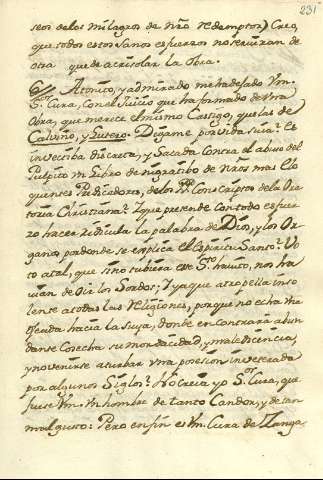 231
seos delos milagros de nr̃o redemptor) Creo,
que todos estos sanos esfuerzos no serviran de
otra que de acrisolar la obra.
Atonito, y admirado me ha dejado Vm.
Sr. Cura, con el Juicio que ha formado de una
Obra, que merece el mismo Castigo, que las de
Calvino, y Lutero. Digame por vida suia: Es
invectiba discreta, y sacada contra el abuso del
Pulpito un Libro denigratibo de nr̃os mas Elo
quentes Predicadores, de los Conscriptos de la Ora
toria Christiana? Y que pretende con todo esfuer
zo hacer ridicula la palabra de Dios, y los Or
ganos por donde se explica el Espiritu Santo? Vo
to atal, que si no tubiera ese Sto. havito, nos ha
vian de oir los Sordos; Y ya que atropella inso
lente a todas las Religiones, porque no echa una
ojeada hacia la suya, donde encontrará abun
dante Cosecha su mordacidad, y maledicencia,
y no venirse a turbar una posesion inveterada
por algunos Siglos? No creia yo Sr. Cura, que
fuese Vm. un hombre de tanto Candor, y de tan
mal gusto: Pero en fin es Vm. Cura de